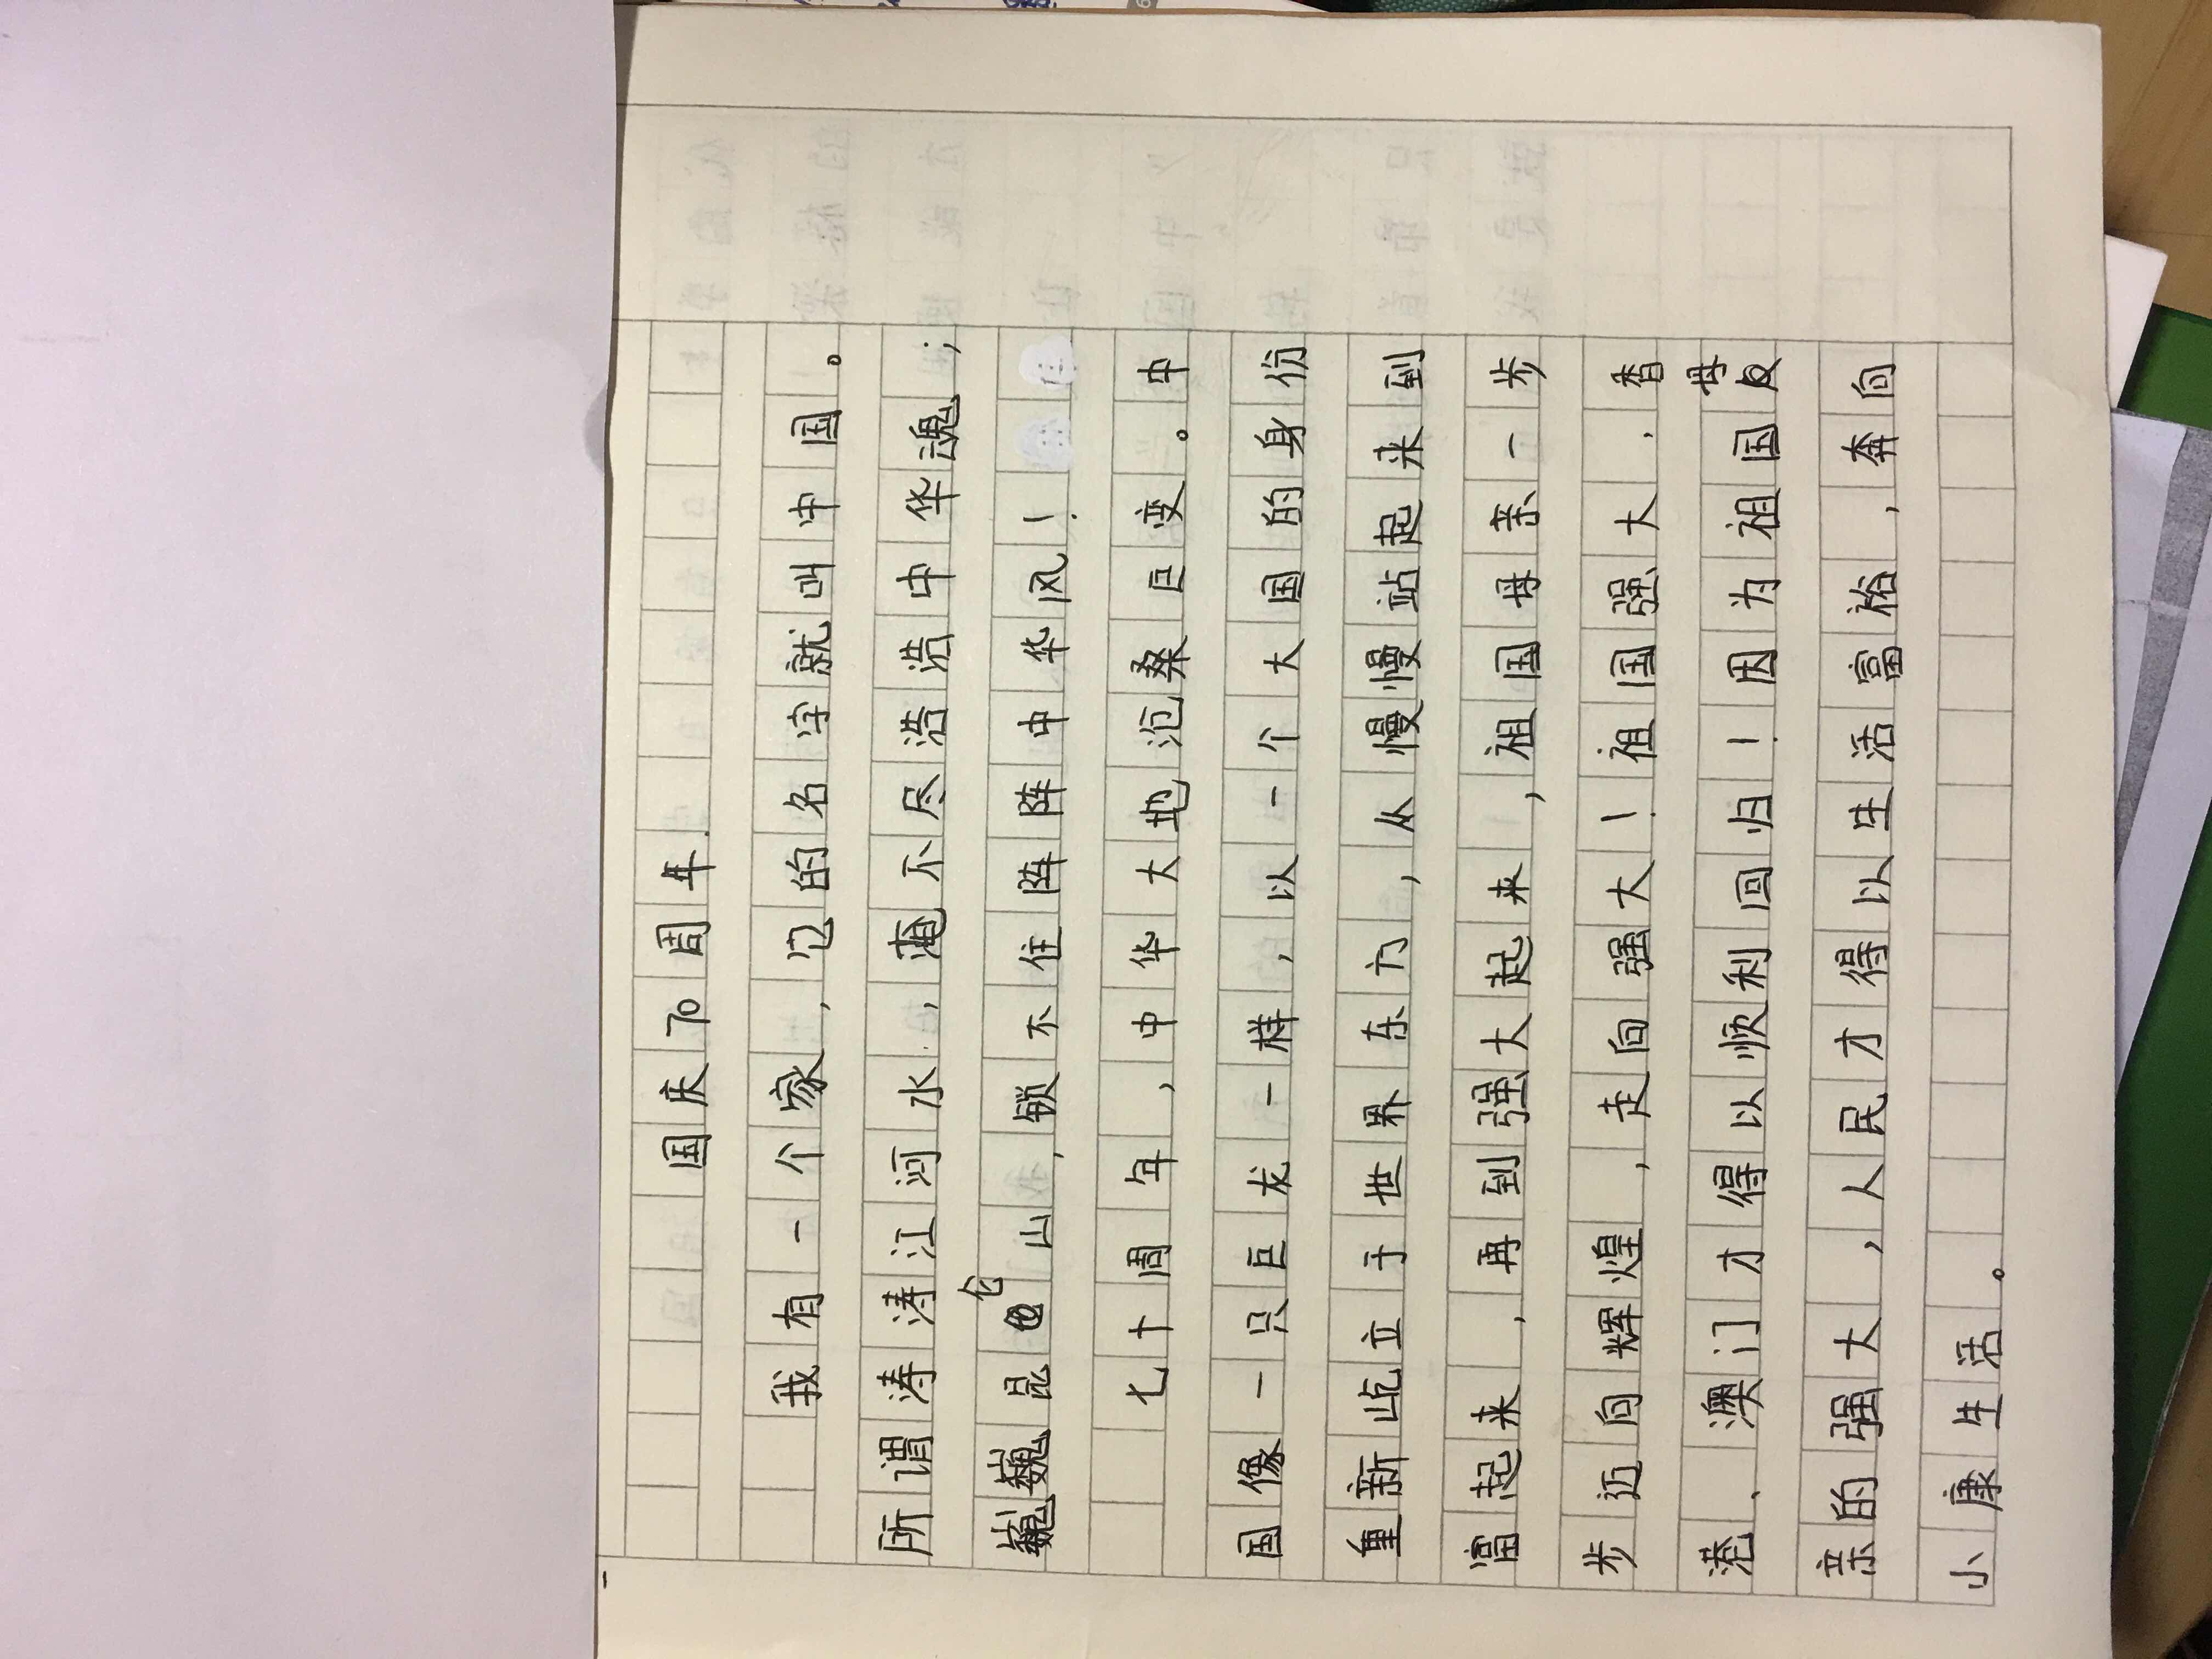 国庆70周年.
我有一个家,它的名字就叫中国。
所谓涛涛江河水,淹不尽浩浩中华魂;
巍巍昆仑山,锁不住阵阵中华风!
七十周年,中华大地沧桑巨变。中
国像一只巨龙一样,以一个大国的身份
重新屹立于世界东方,从慢慢站起来到
富起来,再到强大起来,祖国母亲一步
步迈向辉煌,走向强大!祖国强大,香
港、澳门才得以顺利回归!因为祖国母
亲的强大,人民才得以生活富裕,奔向
小康生活。